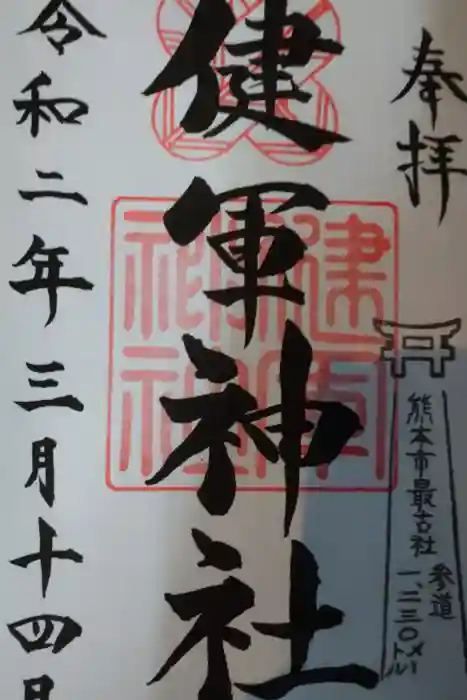 奉拝
熊本市最古社
参道
一、二三〇メートル
健軍神社
令和二年三月十四日